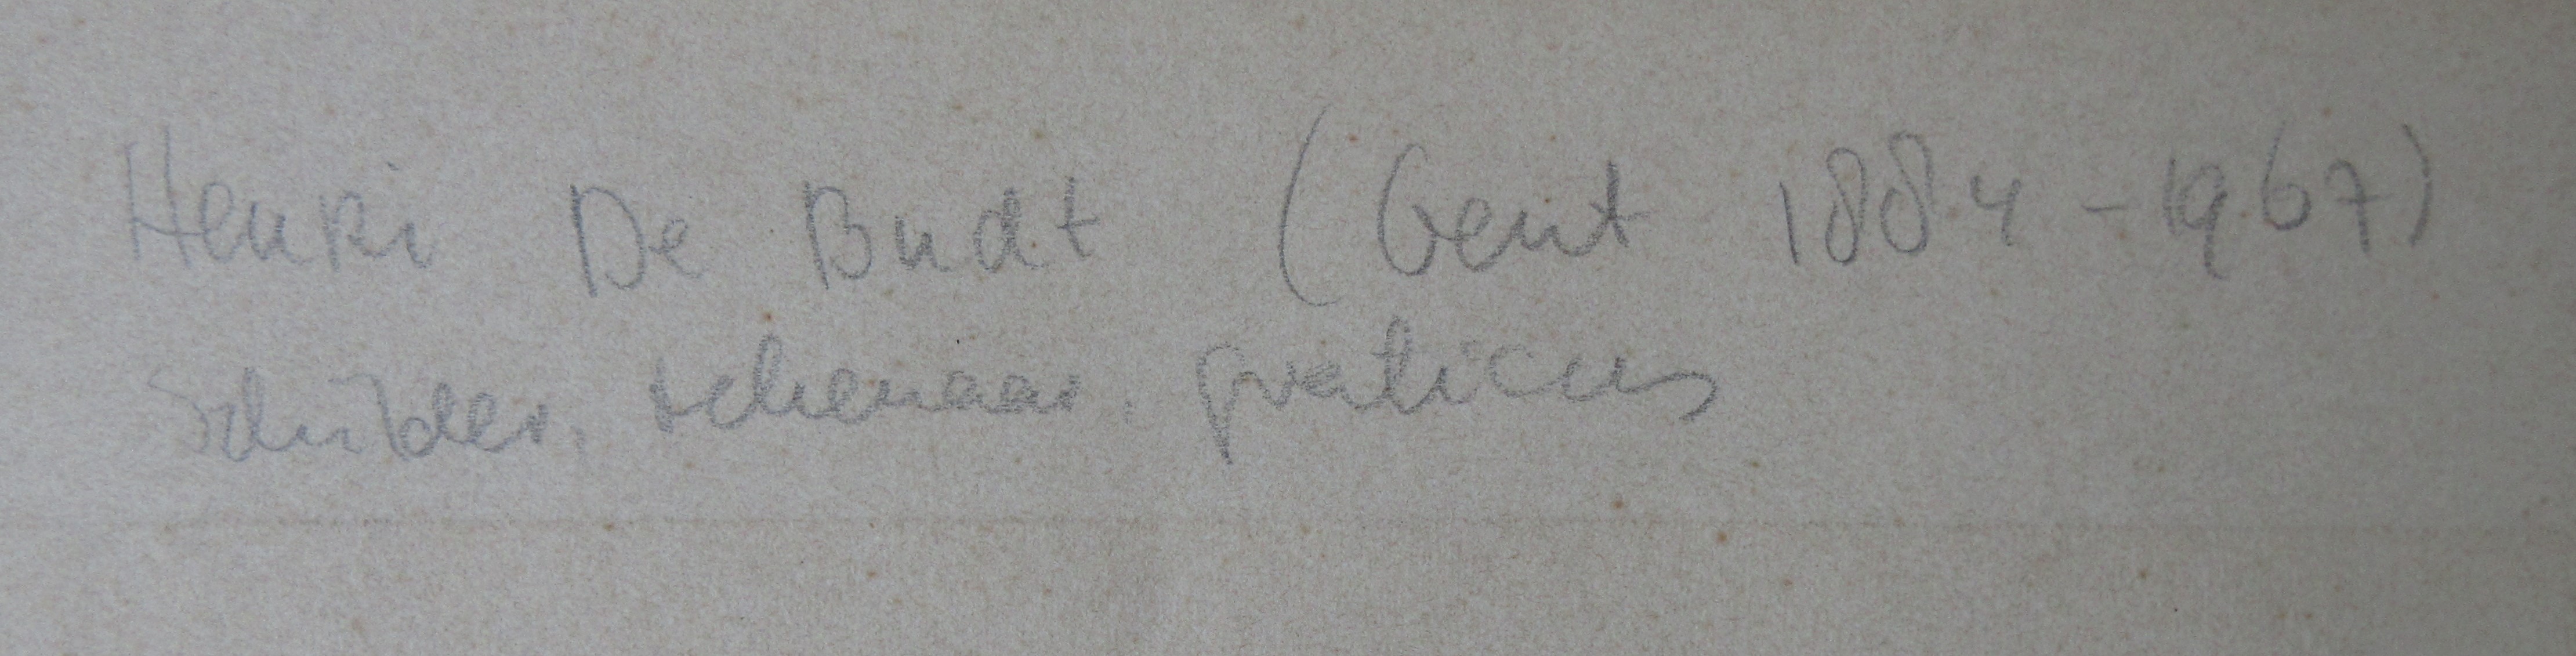 Henri De Budt (Gent 1884-1967)
Schilder, tekenaar, graficus